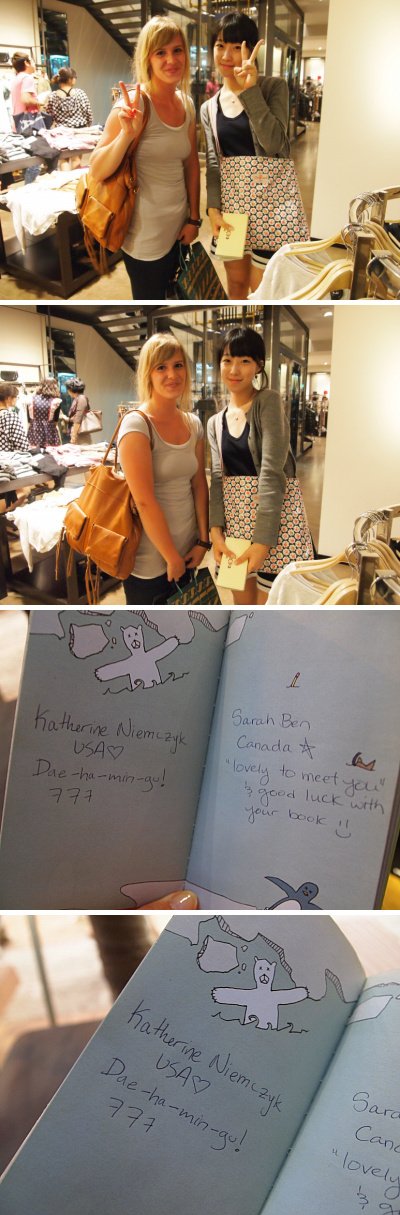 Katherine Niemczyk
USA♡
Dae-ha-min-gu!
777
Sarah Ben
Canada ☆
"lovely to meet you"
& good luck with
your book :)
Katherine Niemczyk
USA♡
Dae-ha-min-gu!
777
Sara
Cana
"lovely
& g